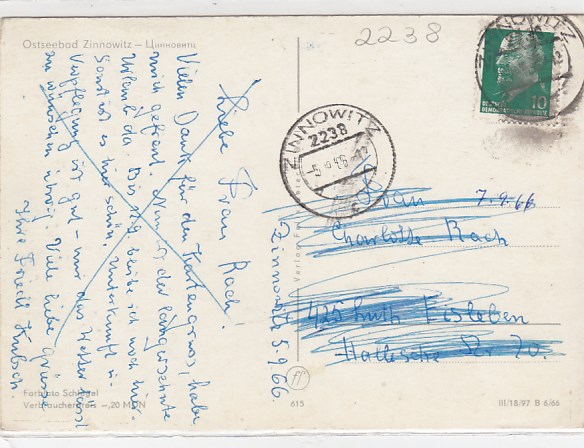 Ostseebad Zinnowitz – Цинновитц
2238
ZINNOWITZ
ZINNOWITZ
2238
DEUTSCHE
DEMOKRATISCHE REPUBLIK
10
Liebe Frau Rach!
Vielen Dank für den Kartengruss, habe
mich gefreut. der
Urlaub da. Bis bleibe ich noch hier.
Sonst ist es hier schön, Unterkunft u.
Verpflegung ist gut – nur das Wetter lässt
zu wünschen übrig. Viele liebe Grüsse
Ihre Friedl
Zinnowitz 5.9.66
Frau 7.9.66
Charlotte Rach
425 Luth. Eisleben
Hallesche Str. 20.
Farbfoto Schlegel
Verbraucherpreis –,20 MDN
615
III/18/97 B 6/66